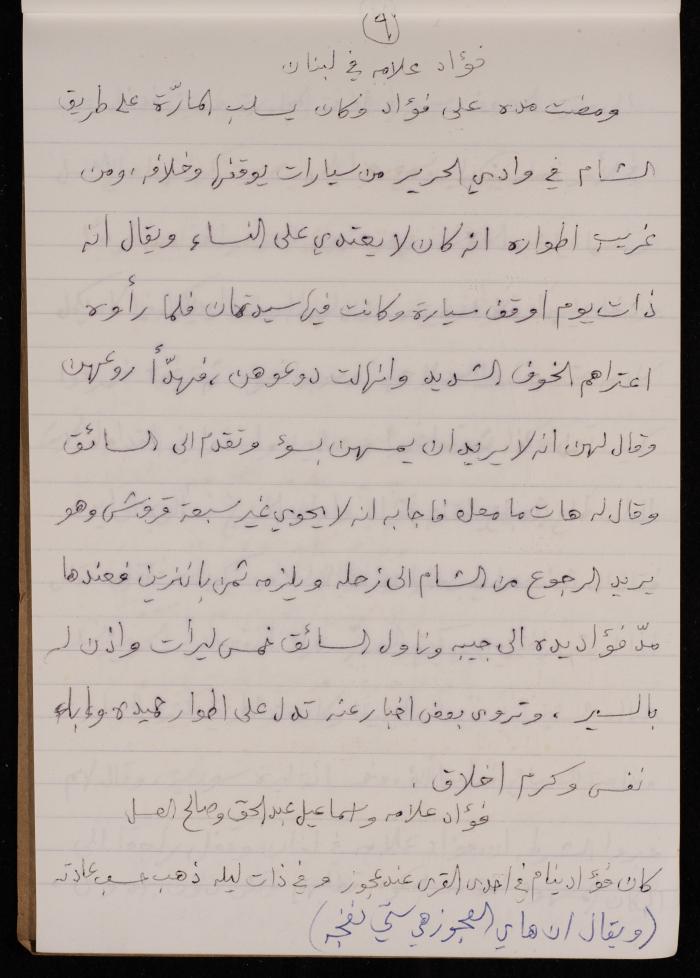 (٩)
فؤاد علامه في لبنان
ومضت مده على فؤاد وكان يسلب المارّة على طريق
الشام في وادي الحرير من سيارات يوقفها وخلافه، ومن
غريب اطواره انه كان لا يعتدي على النساء ويقال انه
ذات يوم اوقف سيارة وكانت فيها سيدتان فلما رأوه
اعتراهم الخوف الشديد وانهالت دموعهن، فهدّأ روعهن
وقال لهن انه لا يريد ان يمسهن بسؤ وتقدم الى السائق
وقال له هات ما معك فاجابه انه لا يحوي غير سبعة قروش وهو
يريد الرجوع من الشام الى زحله ويلزمه ثمن بانزين فعندها
مدّ فؤاد يده الى جيبه وناول السائق خمس ليرات واذن له
بالسير، وتروى بعض اخبار عنه تدل على اطوار حميده واباء
نفس وكرم اخلاق.
فؤاد علامه واسماعيل عبد الحق وصالح العسل
كان فؤاد ينام في احدى القرى عند عجوز وفي ذات ليله ذهب حسب عادته
(ويقال ان هاي العجوز هي ستي نفجه)